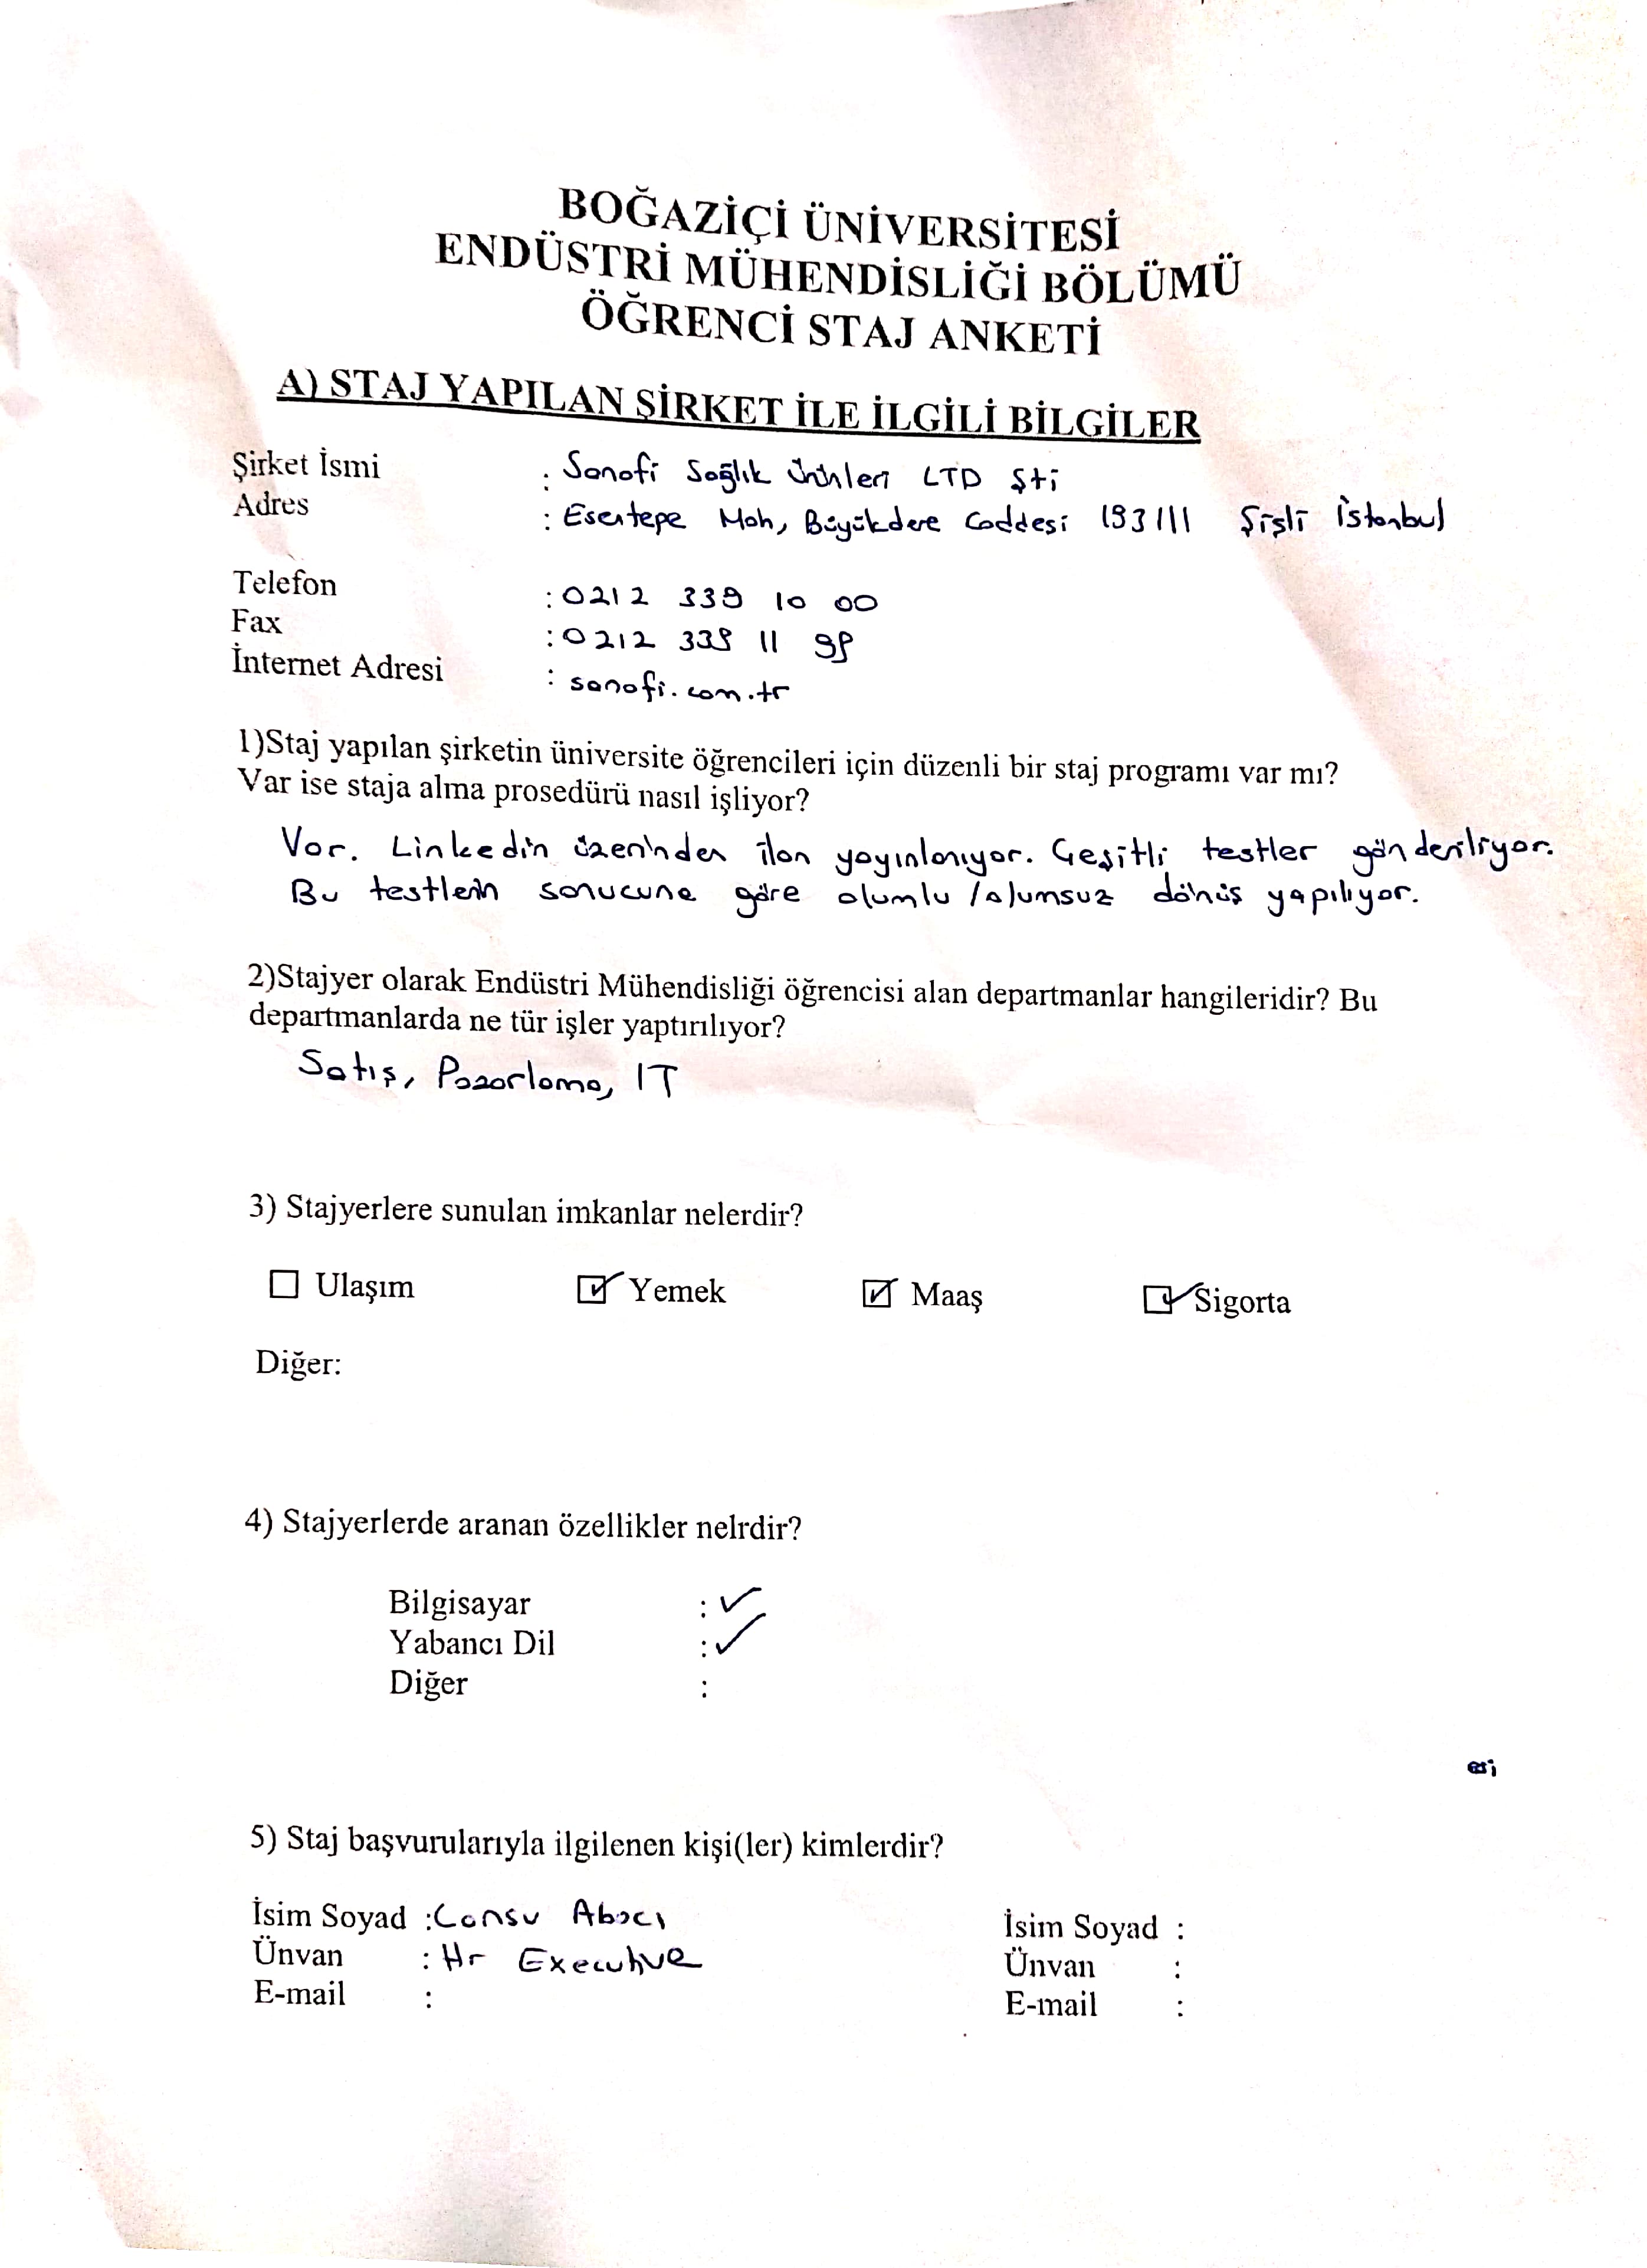 BOĞAZİÇİ ÜNİVERSİTESİ
ENDÜSTRİ MÜHENDİSLİĞİ BÖLÜMÜ
ÖĞRENCİ STAJ ANKETİ
A) STAJ YAPILAN ŞİRKET İLE İLGİLİ BİLGİLER
Şirket İsmi : Sanofi Sağlık Ürünleri LTD Şti
Adres : Esentepe Mah, Büyükdere Caddesi 193/11 Şişli İstanbul
Telefon : 0212 339 10 00
Fax : 0212 339 11 99
İnternet Adresi : sanofi.com.tr
1)Staj yapılan şirketin üniversite öğrencileri için düzenli bir staj programı var mı?
Var ise staja alma prosedürü nasıl işliyor?
Var. Linkedin üzerinden ilan yayınlanıyor. Çeşitli testler gönderiliyor.
Bu testlerin sonucuna göre olumlu / olumsuz dönüş yapılıyor.
2)Stajyer olarak Endüstri Mühendisliği öğrencisi alan departmanlar hangileridir? Bu
departmanlarda ne tür işler yaptırılıyor?
Satış, Pazarlama, IT
3) Stajyerlere sunulan imkanlar nelerdir?
Ulaşım Yemek Maaş Sigorta
Diğer:
4) Stajyerlerde aranan özellikler nelrdir?
Bilgisayar : ✓
Yabancı Dil : ✓
Diğer :
5) Staj başvurularıyla ilgilenen kişi(ler) kimlerdir?
İsim Soyad : Cansu Abacı İsim Soyad :
Ünvan : Hr Executive Ünvan :
E-mail : E-mail :